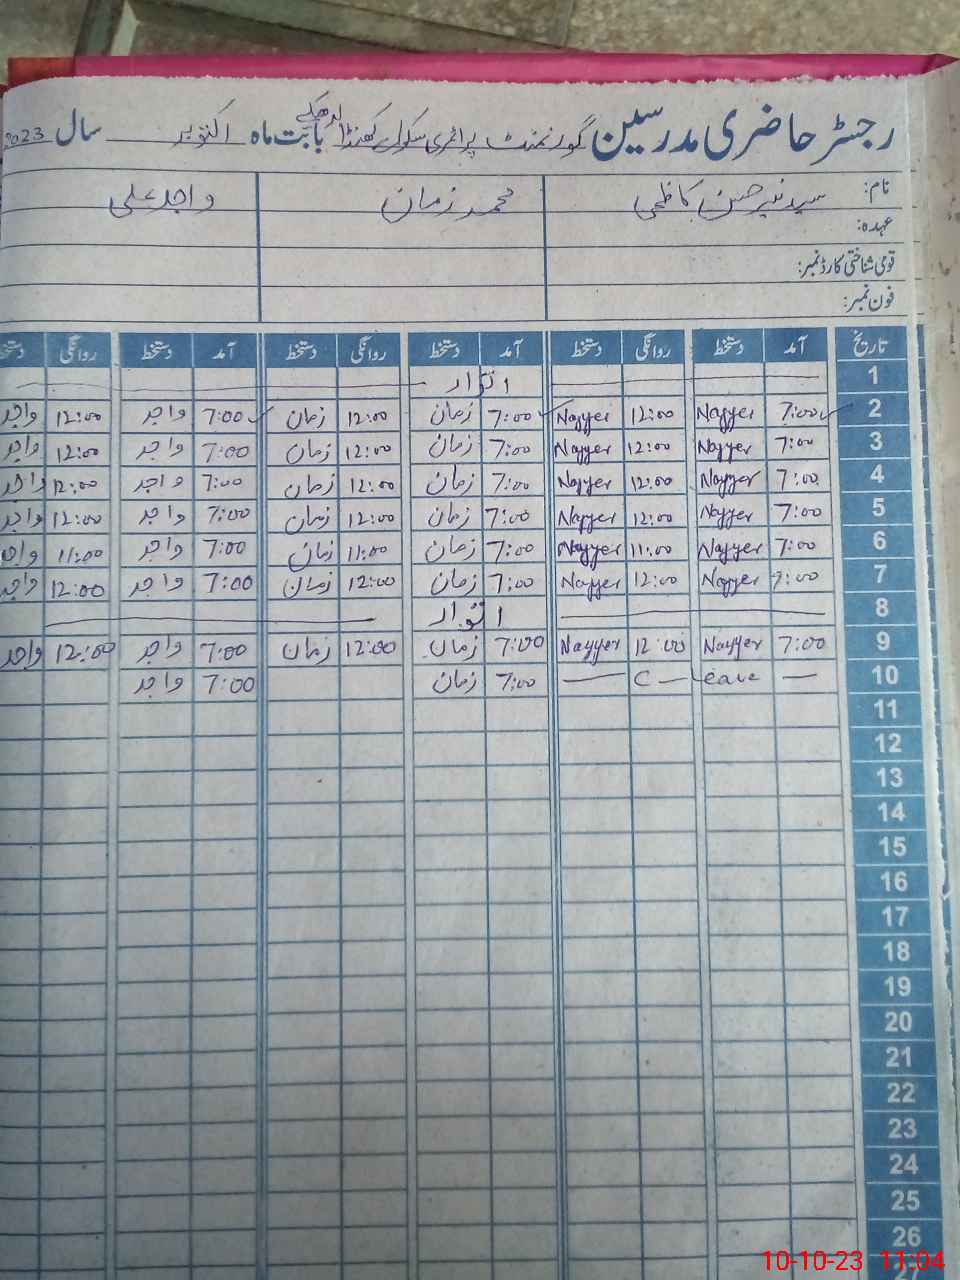 رجسٹر حاضری مدرسین گورنمنٹ پرائمری سکول کھنڈا بابت ماہ اکتوبر سال 2023
نام: سید نیر حسن کاظمی محمد زمان واجد علی
عہدہ:
قومی شناختی کارڈ نمبر:
فون نمبر:
تاریخ آمد دستخط روانگی دستخط آمد دستخط روانگی دستخط آمد دستخط روانگی دستخط
1 اتوار
2 7:00 Nayyer 12:00 Nayyer 7:00 زمان 12:00 زمان 7:00 واجد 12:00 واجد
3 7:00 Nayyer 12:00 Nayyer 7:00 زمان 12:00 زمان 7:00 واجد 12:00 واجد
4 7:00 Nayyer 12:00 Nayyer 7:00 زمان 12:00 زمان 7:00 واجد 12:00 واجد
5 7:00 Nayyer 12:00 Nayyer 7:00 زمان 12:00 زمان 7:00 واجد 12:00 واجد
6 7:00 Nayyer 11:00 Nayyer 7:00 زمان 11:00 زمان 7:00 واجد 11:00 واجد
7 7:00 Nayyer 12:00 Nayyer 7:00 زمان 12:00 زمان 7:00 واجد 12:00 واجد
8 اتوار
9 7:00 Nayyer 12:00 Nayyer 7:00 زمان 12:00 زمان 7:00 واجد 12:00 واجد
10 — C — Leave — 7:00 زمان 7:00 واجد
11
12
13
14
15
16
17
18
19
20
21
22
23
24
25
26
10-10-23 11:04